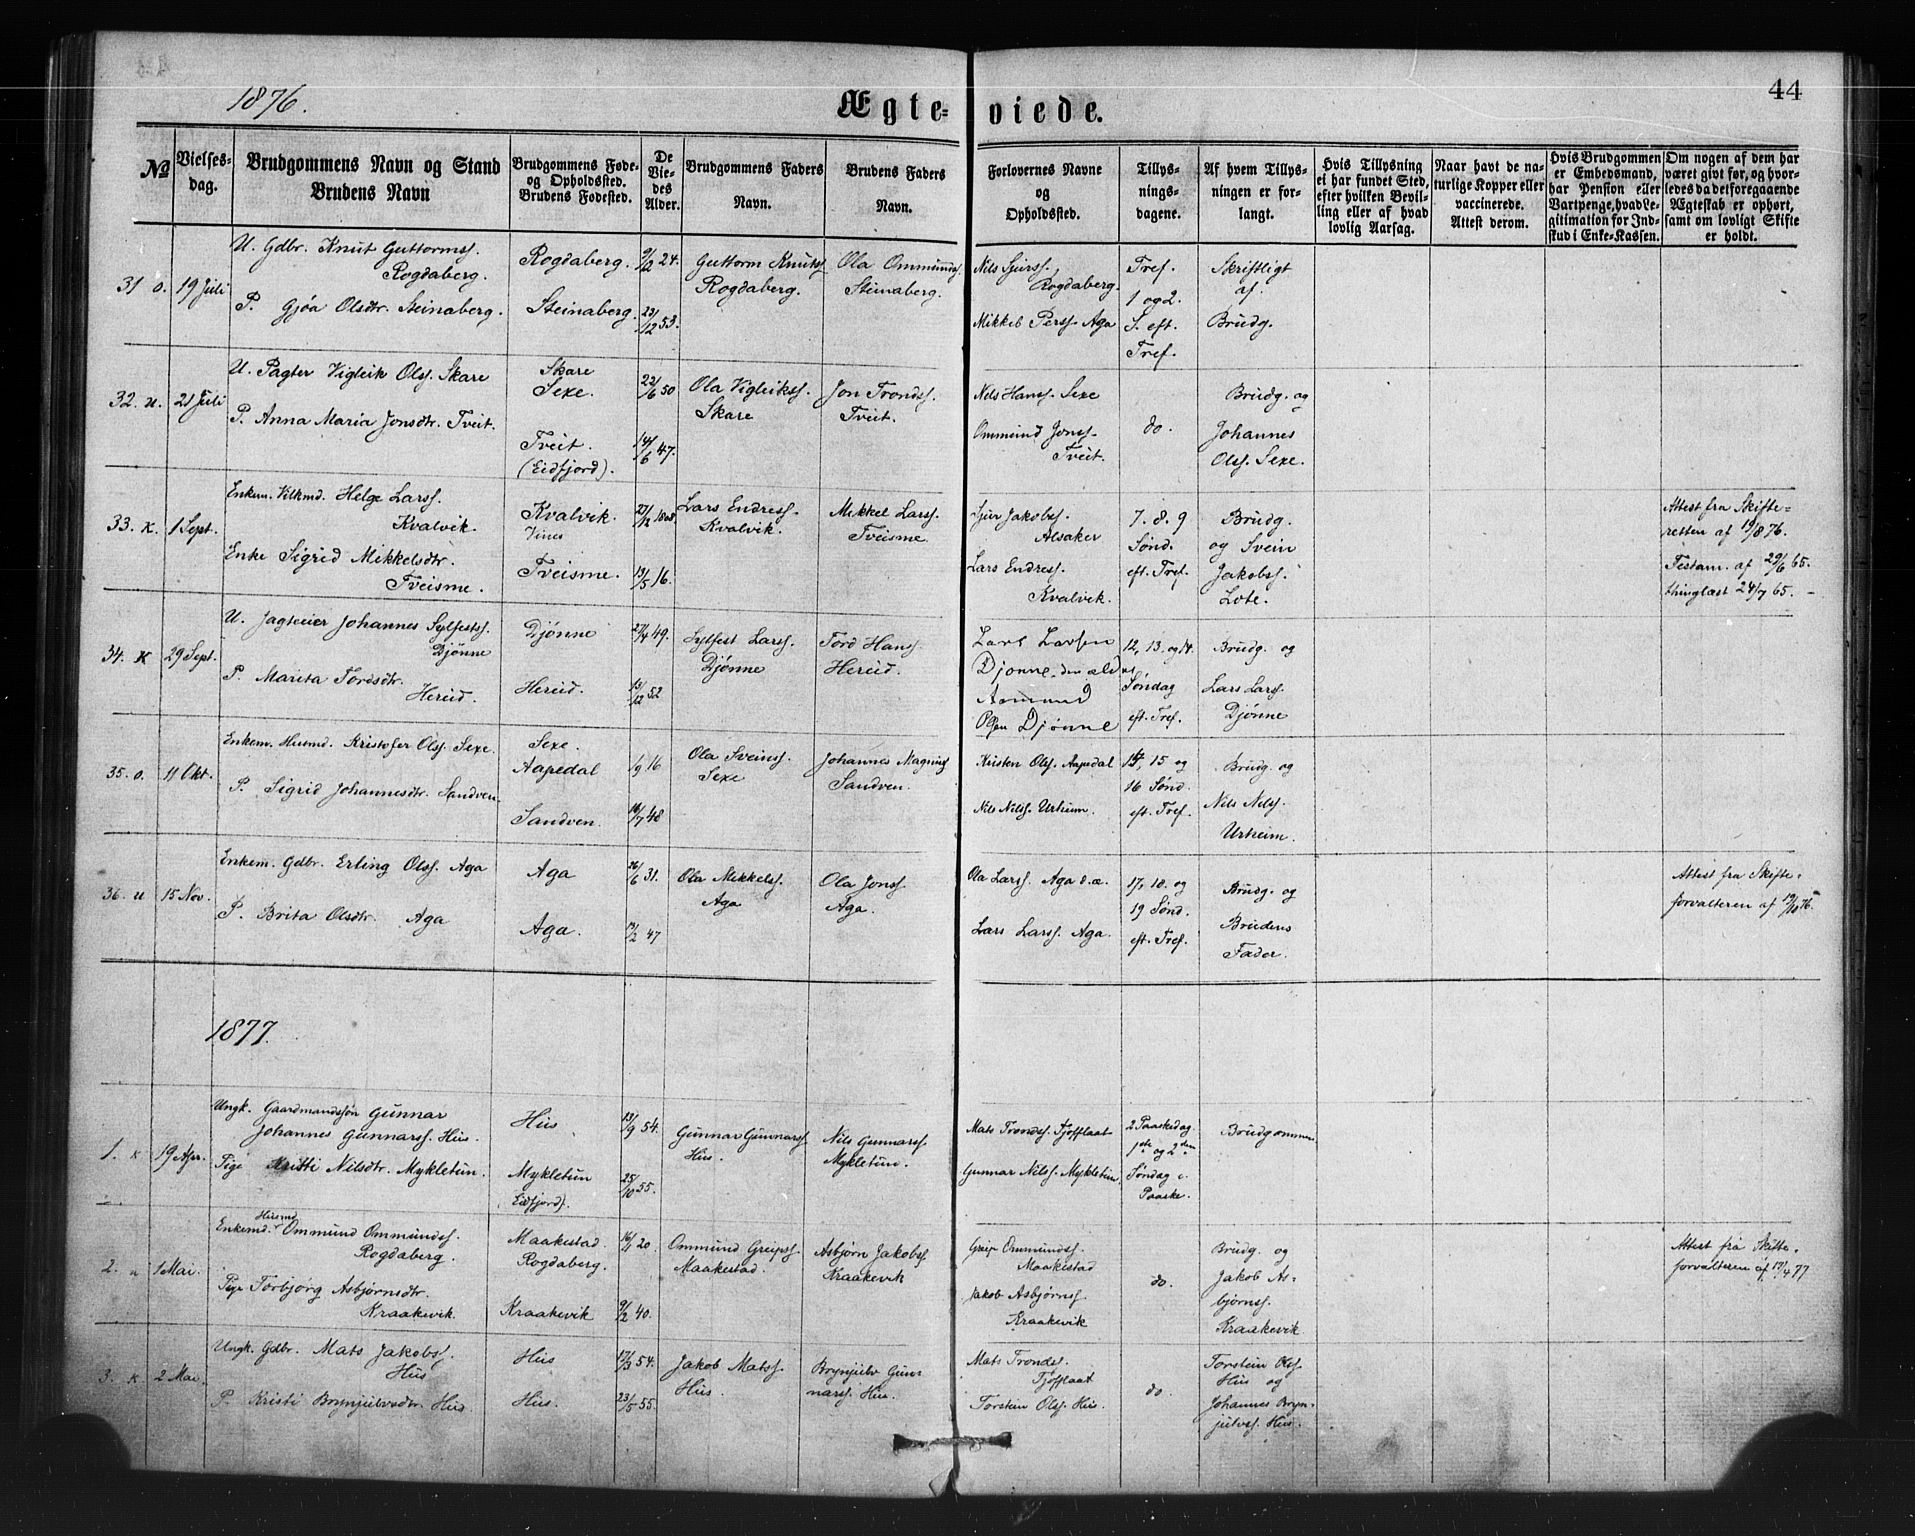 1876.
Ægte-viede.
44
No
Vielses-dag.
Brudgommens Navn og Stand
Brudens Navn
Brudgommens Føde-
og Opholdssted.
Brudens Fødested.
De
Vie-
des
Alder.
Brudgommens Faders
Navn.
Brudens Faders
Navn.
Forlovernes Navne
og
Opholdsted.
Tillys-
nings-
dagene.
Af hvem Tillys-
ningen er for-
langt.
Hvis Tillysning
ei har fundet Sted,
efter hvilken Bevil-
ling eller af hvad
lovlig Aarsag.
Naar havt de na-
turlige Kopper eller
vaccinerede.
Attest derom.
Hvis Brudgommen
er Embedsmand,
har Pension eller
Vartpenge, hvad Le-
gitimation for Ind-
skud i Enke-Kassen.
Om nogen af dem har
været givt før, og hvor-
ledes da det foregaaende
Ægteskab er ophørt,
samt om lovligt Skifte
er holdt.
31 o. 19 Juli
U. Gdbr. Knut Guttormss.
Rogdaberg.
P. Gjøa Olsdtr. Steinaberg.
Rogdaberg.
Steinaberg.
9/2 24.
23/12 53.
Guttorm Knutss.
Rogdaberg.
Ola Ommunds.
Steinaberg.
Nils Sjurss.
Rogdaberg.
Mikkel Perss. Aga
Tref.
1 og 2.
S. eft.
Tref.
Skriftligt
af
Brudg.
32. u. 21 Juli
U. Pagter Vigleik Olss. Skare
P. Anna Maria Jonsdtr. Tveit.
Skare
Sexe.
Tveit.
(Eidfjord).
22/6 50
14/6 47.
Ola Vigleikss.
Skare
Jon Tronds.
Tveit.
Nils Hanss. Sexe
Ommund Jonss.
Tveit.
do.
Brudg. og
Johannes
Olss. Sexe.
33. K. 1 Sept.
Enkem. Vilkmd. Helge Larss.
Kvalvik.
Enke Sigrid Mikkelsdtr.
Tveisme.
Kvalvik.
Vines
Tveisme.
27/12 1808.
13/5 16.
Lars Endress.
Kvalvik.
Mikkel Larss.
Tveisme.
Sjur Jakobss.
Alsaker
Lars Endress.
Kvalvik.
7. 8. 9
Sønd.
eft. Tref.
Brudg.
og Svein
Jakobss.
Lote.
Attest fra Skifte-
retten af 19/8 76.
Testam. af 29/6 65.
thinglæst 24/7 65.
34. K 29 Sept.
U. Jagteeier Johannes Sylfestss.
Djønne
P. Marita Tordsdtr.
Hereid.
Djønne
Hereid.
27/4 49.
13/12 52
Sylfest Larss.
Djønne
Tord Hanss.
Hereid.
Lars Larsen
Djønne den æld
Aamund
Olsen Djønne
12, 13. og 14.
Søndag
eft. Tref.
Brudg. og
Lars Larss.
Djønne
35. o. 11 Okt.
Enkem. Husmd. Kristofer Olss. Sexe.
P. Sigrid Johannesdtr. Sandven.
Sexe.
Aapedal
Sandven.
1/9 16
16/7 48
Ola Sveinss.
Sexe
Johannes Magnuss.
Sandven.
Kristen Olss. Aapedal
Nils Nilss. Urheim.
14, 15 og
16 Sønd.
eft. Tref.
Brudg. og
Nils Nilss.
Urheim.
36. u 15 Nov.
Enkem. Gdbr. Erling Olss. Aga
P. Brita Olsdtr. Aga
Aga
Aga.
26/6 31.
14/2 47
Ola Mikkelss.
Aga
Ola Jonss.
Aga.
Ola Larss. Aga d.æ.
Lars Larss. Aga.
17, 18. og
19 Sønd.
eft. Tref.
Brudg. og
Brudens
Fader.
Attest fra Skifte-
forvalteren af 19/10 76.
1877.
1. K 19 Apr.
Ungk. Gaardmandssøn Gunnar
Johannes Gunnarss. Hus.
Pige Kristi Nilsdtr. Mykletun.
Hus.
Mykletun
(Eidfjord).
13/9 54.
25/10 55.
Gunnar Gunnarss.
Hus.
Nils Gunnarss.
Mykletun.
Mats Trondss. Tjoflaat
Gunnar Nilss. Mykletun.
2 Paaskedag
1ste og 2den
Søndag e.
Paaske.
Brudgommen
2. u 1 Mai.
Enkemd. Husmd. Ommund Ommundss.
Rogdaberg.
Pige Torbjørg Asbjørnsdtr.
Kraakevik.
Maakestad.
Rogdaberg.
Kraakevik
16/11 20.
9/2 40.
Ommund Greipss.
Maakestad.
Asbjørn Jakobss.
Kraakevik
Greip Ommundss.
Maakestad
Jakob Asbjørnss.
Kraakevik
do.
Brudg. og
Jakob As-
bjørnss.
Kraakevik
Attest fra Skifte-
forvalteren af 17/4 77
3. K 2 Mai.
Ungk. Gdbr. Mats Jakobss.
Hus
P. Kristi Brynjulvsdtr. Hus
Hus
Hus.
17/3 54.
23/5 55.
Jakob Matss.
Hus.
Brynjulv Gun-
narss. Hus.
Mats Trondss.
Tjoflaat
Torstein Olss. Hus.
do.
Torstein Olss.
Hus og
Johannes Bryn-
julvss. Hus.